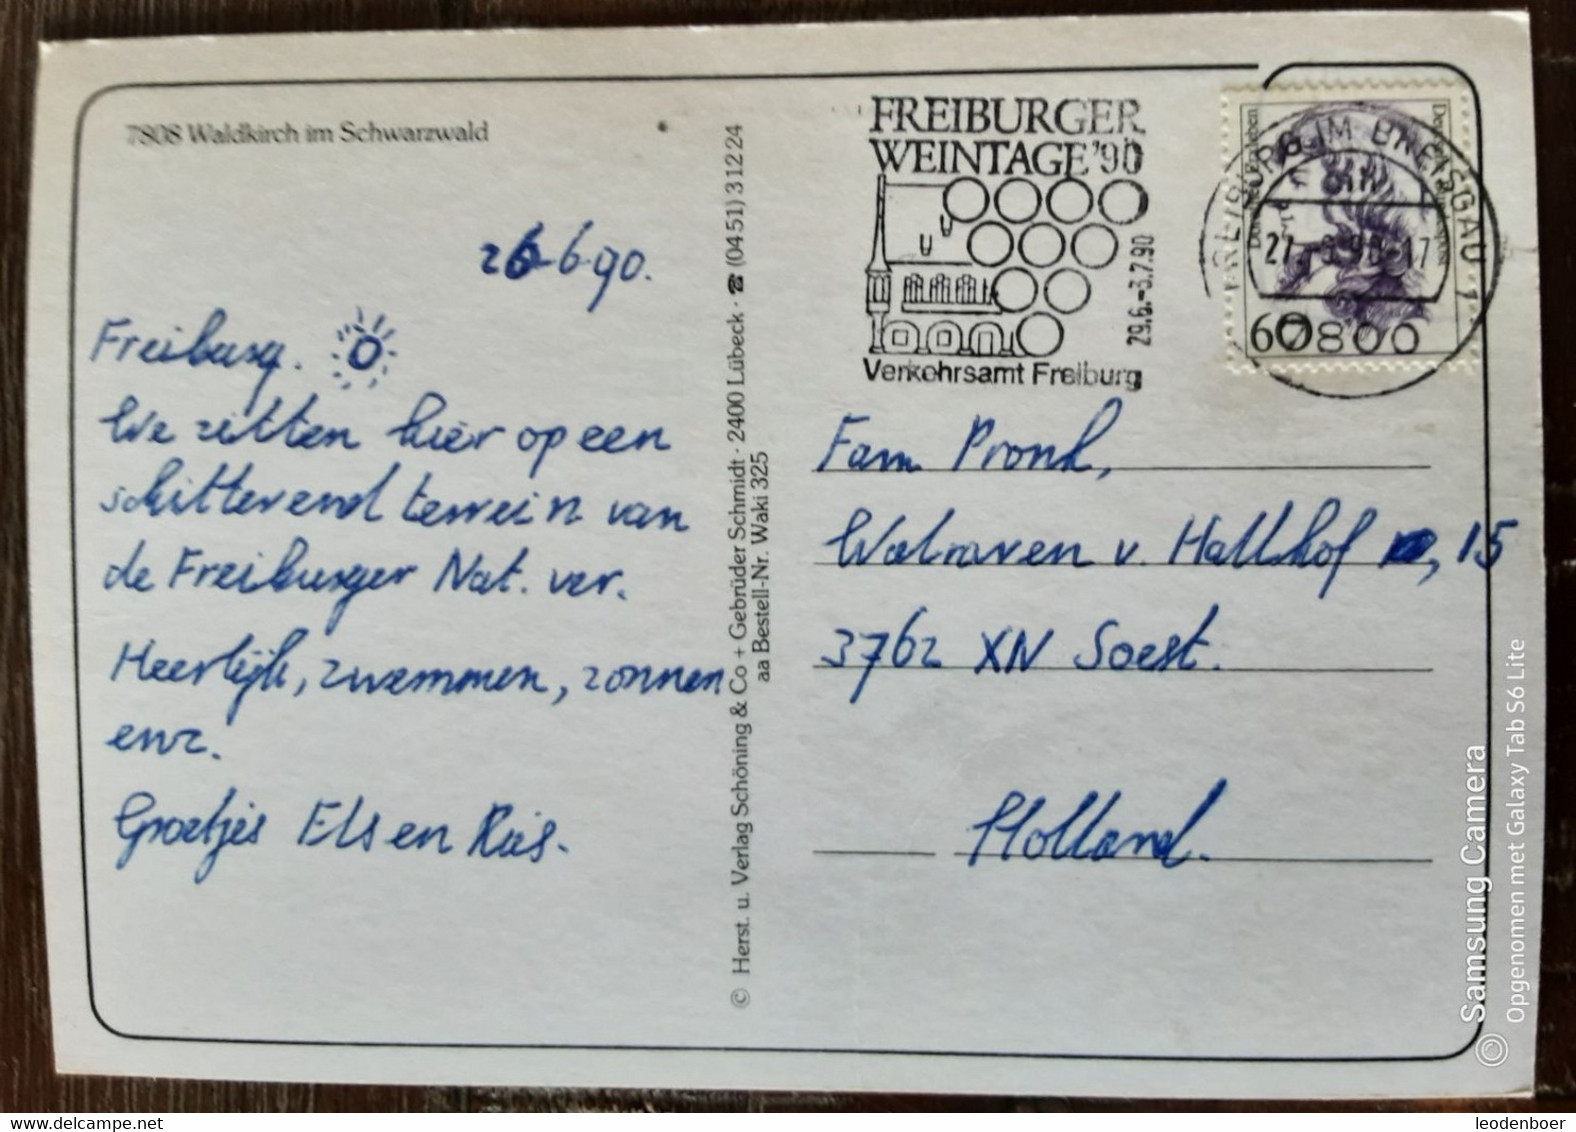 7808 Waldkirch im Schwarzwald
26-6-90.
Freiburg.
We zitten hier op een
schitterend terrein van
de Freiburger Nat. ver.
Heerlijk, zwemmen, zonnen
enz.
Groetjes Els en Riús.
© Herst. u. Verlag Schöning & Co + Gebrüder Schmidt · 2400 Lübeck · ☎ (0451) 31224
aa Bestell-Nr. Waki 325
FREIBURGER
WEINTAGE '90
29.6.-3.7.90
Verkehrsamt Freiburg
FREIBURG IM BREISGAU 1
27.-6.90-17
7800
60
Fam Pronk,
Walraven v. Hallhof, 15
3762 XN Soest.
Holland.
Samsung Camera
Opgenomen met Galaxy Tab S6 Lite
www.delcampe.net
leodenboer